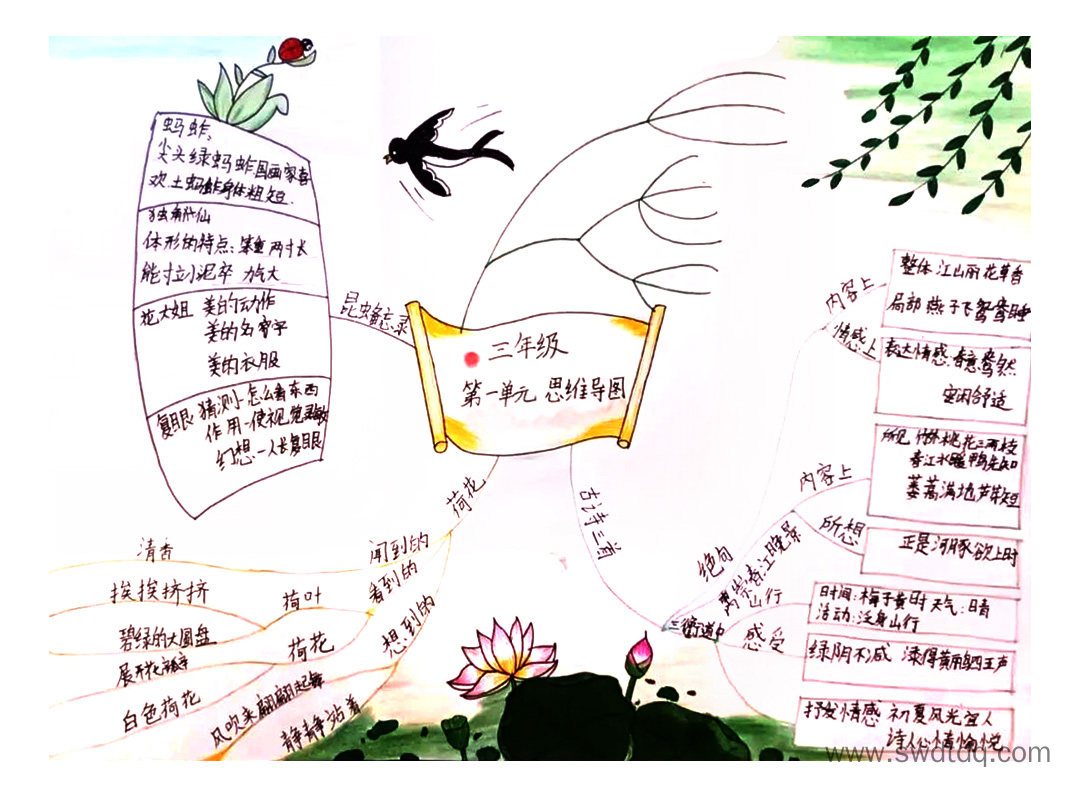 三年级
第一单元 思维导图
昆虫备忘录
蚂蚱,
尖头绿蚂蚱国画家喜
欢.土蚂蚱身体粗短.
独角仙
体形的特点:笨重 两寸长
力气大
花大姐 美的动作
美的名字
美的衣服
复眼 猜测-怎么看东西
作用-使视觉灵敏
幻想-人长复眼
荷花
闻到的
清香
看到的
荷叶
挨挨挤挤
碧绿的大圆盘
荷花
白色荷花
想到的
风吹来翩翩起舞
静静站着
古诗三首
绝句
内容上
整体 江山丽 花草香
局部 燕子飞 鸳鸯睡
情感上
表达情感:春意盎然
空闲舒适
惠崇春江晚景
内容上
所见 竹外桃花三两枝
春江水暖鸭先知
蒌蒿满地芦芽短
所想
正是河豚欲上时
三衢道中
山行
时间:梅子黄时 天气:晴
活动:泛舟山行
感受
绿阴不减 添得黄鹂四五声
抒发情感 初夏风光宜人
诗人心情愉悦
www.swdtdq.com